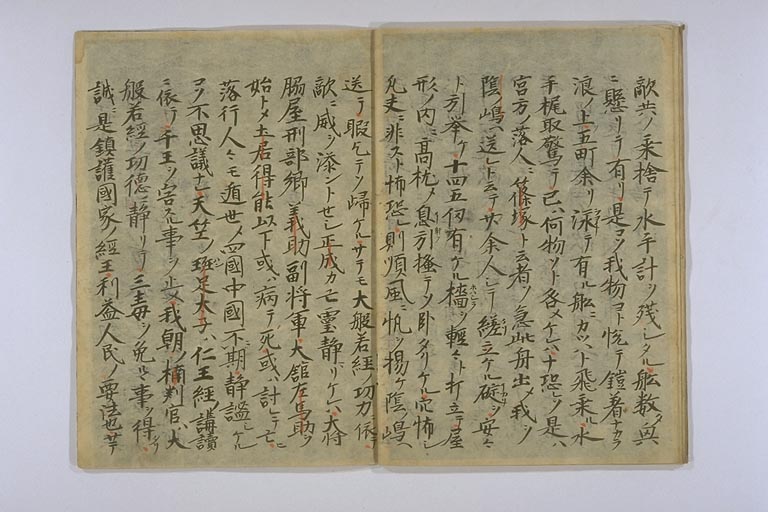 敵共ノ乗捨テ水手計ツ残シタル舩数タ
ニ懸リテ有リ是コソ我物ヨト悦テ鎧着ナカラ
浪ノ上五町余リ泳テ有ル舩ニカツハト飛乗ル水
手梶取驚テ己ハ何物ソト各メケレハ十恐レソ是ハ
宮方ノ落人ニ篠塚ト云者ソ急此舟出メ我ヲ
陰ノ嶋ヘ送レト云テ廿余人シテ繰立ケル碇ヲ安々
ト引挙ケ十四五仞有ケル檣ヲ軽々ト打立テ屋
形ノ内ニ高枕メ息引掻テソ臥タリケル穴怖シ
凡夫ニ非スト怖恐レ則順風ニ帆ヲ揚ケ陰嶋
送テ暇乞テソ歸ケルサテモ大般若経ノ功力ニ依テ
敵ニ威ヲ添ントセシ正成カ亡靈静リケレハ大将
脇屋刑部卿ノ義助副将軍ノ大舘左馬助ヲ
始トメ土居得能以下或ハ病テ死或ハ討レテ亡ニ
落行人々モ遁世ノ四國中國不期静謐シケル
コソ不思議ナレ天竺ノ班足太子ハ仁王経ノ講讀
ニ依テ千王ヲ害セル事ヲ止メ我朝ノ楠判官ハ大
般若経ノ功徳ニ静リテ三毒ヲ免ルヽ事ヲ得タリ
誠ニ是鎮護國家ノ經王利益人民ノ要法也サテ